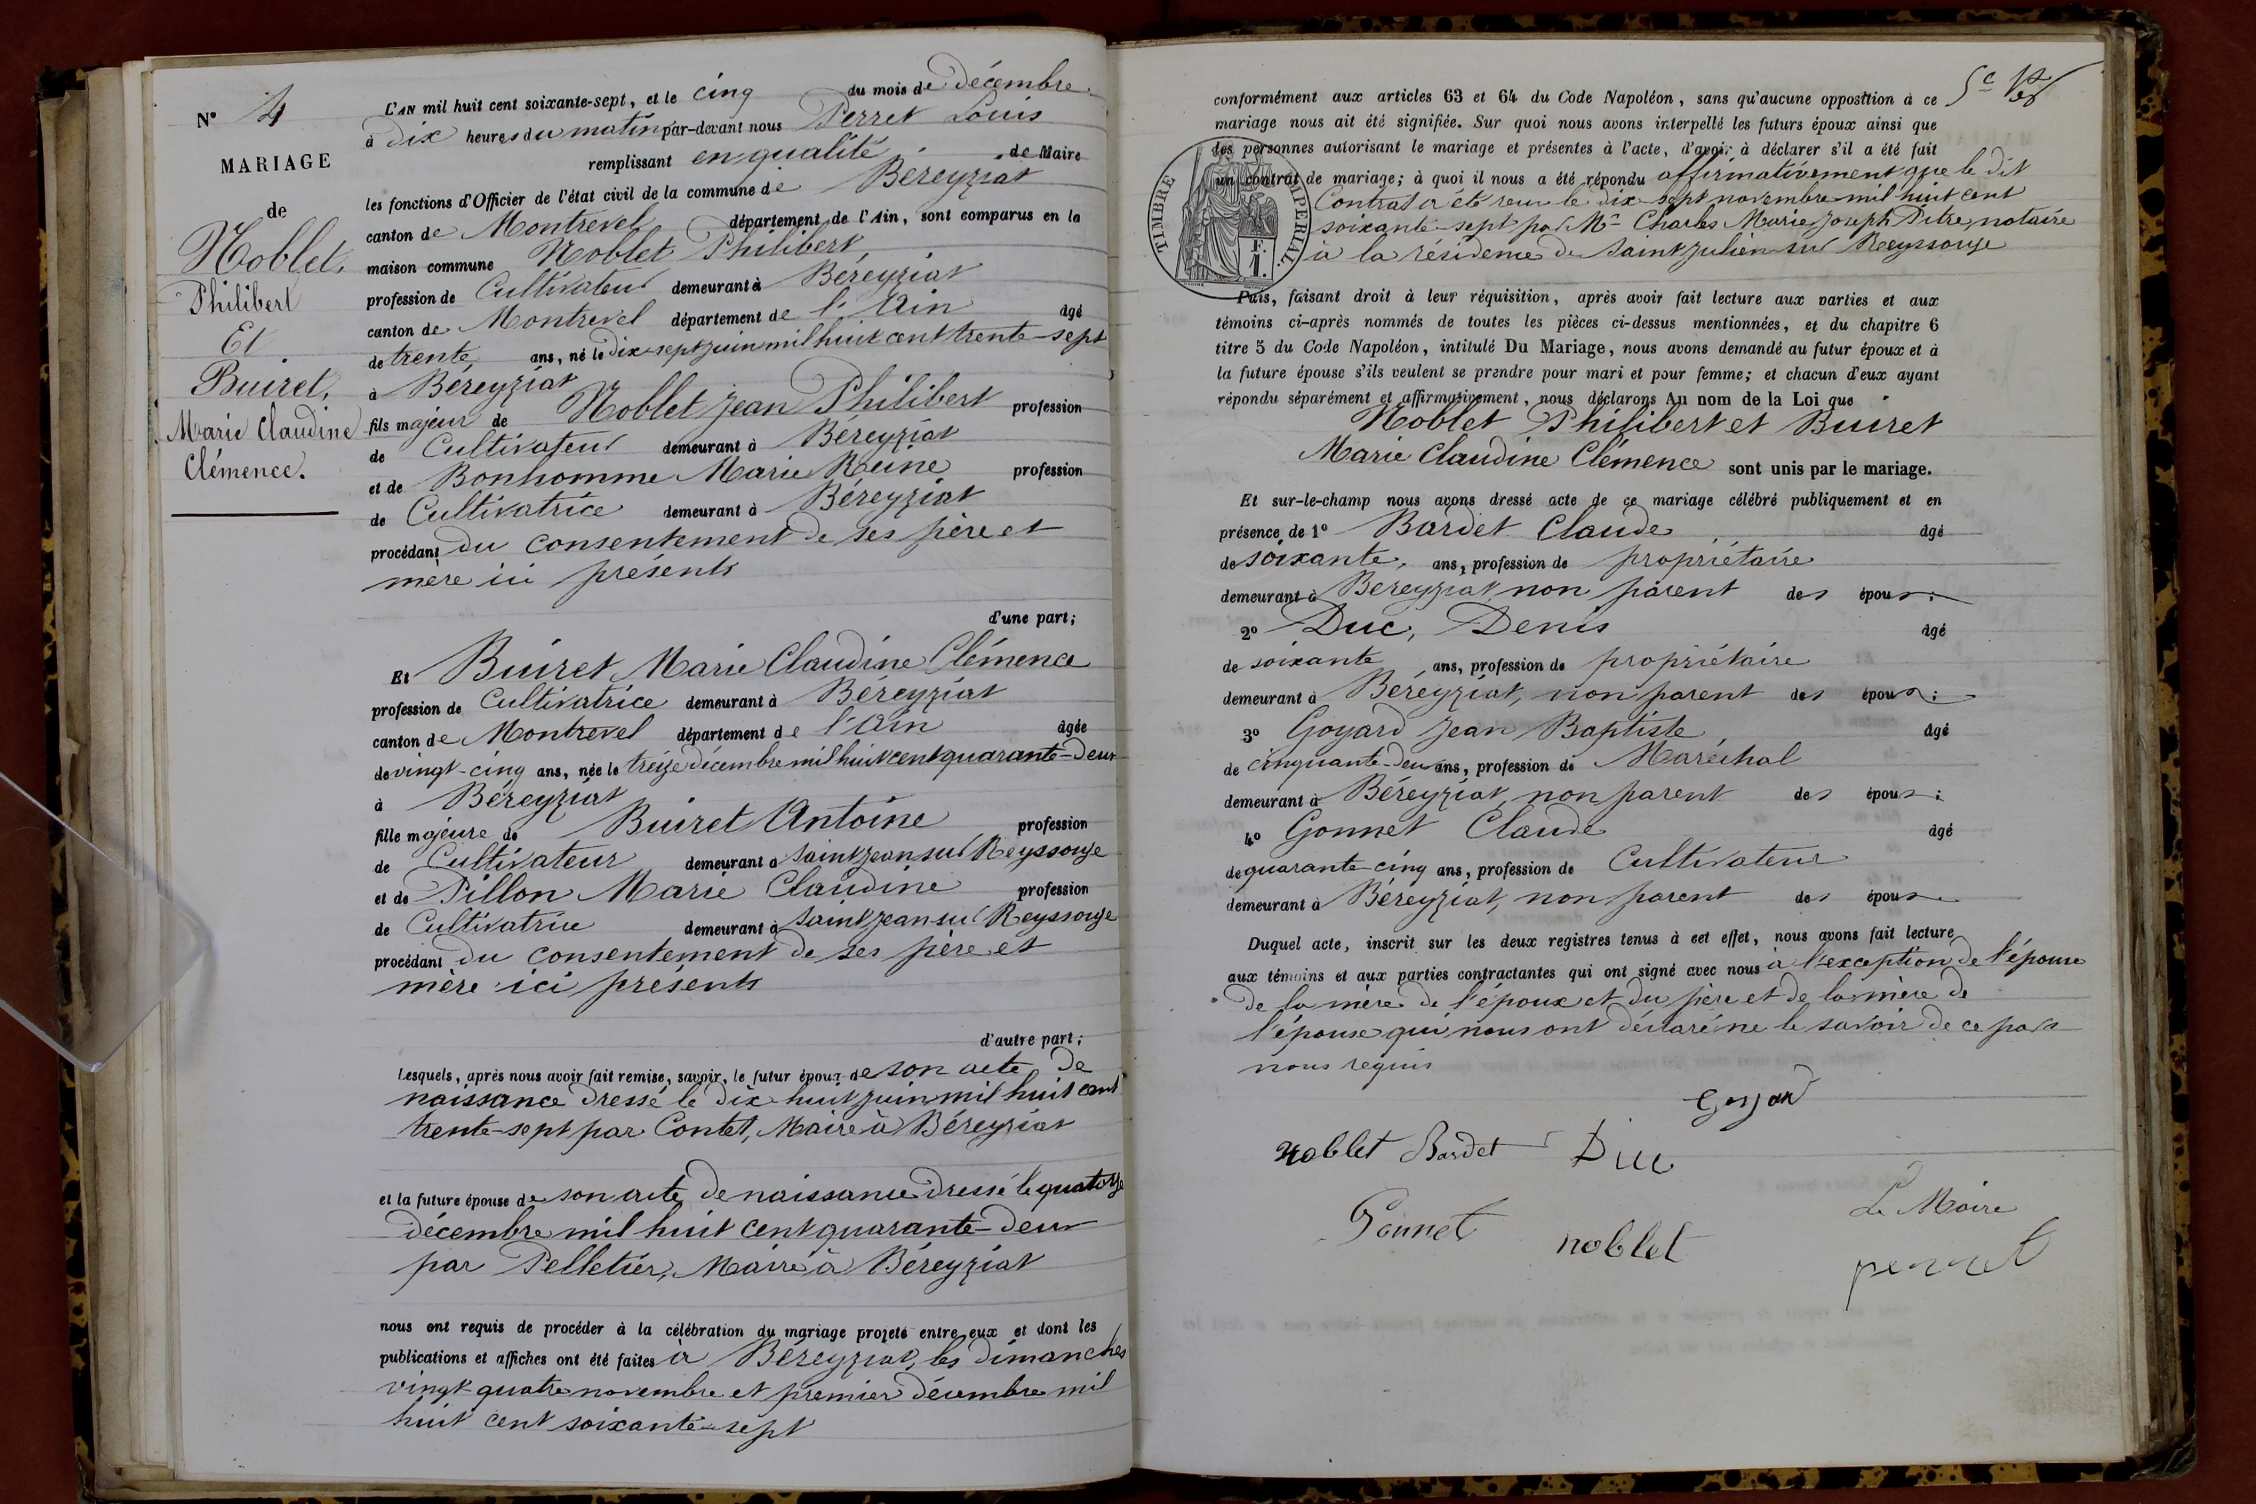 N° 4
MARIAGE
de
Noblet,
Philibert
Et
Buiret,
Marie Claudine
Clémence.
L'AN mil huit cent soixante-sept, et le cinq du mois de Décembre
à dix heures du matin par-devant nous Perret Louis
remplissant en qualité de Maire
les fonctions d'Officier de l'état civil de la commune de Béreyziat
canton de Montrevel département de l'Ain, sont comparus en la
maison commune Noblet Philibert,
profession de Cultivateur demeurant à Béreyziat
canton de Montrevel département de l'Ain âgé
de trente ans, né le dix-sept juin mil huit cent trente-sept
à Béreyziat
fils majeur de Noblet Jean Philibert profession
de Cultivateur demeurant à Béreyziat
et de Bonhomme Marie Reine profession
de Cultivatrice demeurant à Béreyziat
procédant du consentement de ses père et
mère ici présents
d'une part;
Et Buiret Marie Claudine Clémence
profession de Cultivatrice demeurant à Béreyziat
canton de Montrevel département de l'Ain âgée
de vingt-cinq ans, née le treize décembre mil huit cent quarante-deux
à Béreyziat
fille majeure de Buiret Antoine profession
de Cultivateur demeurant à Saint Jean sur Reyssouze
et de Pillon Marie Claudine profession
de Cultivatrice demeurant à Saint Jean sur Reyssouze
procédant du consentement de ses père et
mère ici présents
d'autre part;
Lesquels, après nous avoir fait remise, savoir, le futur époux de son acte de
naissance dressé le dix-huit juin mil huit cent
trente-sept par Contet, Maire à Béreyziat
et la future épouse de son acte de naissance dressé le quatorze
décembre mil huit cent quarante-deux
par Pelletier, Maire à Béreyziat
nous ont requis de procéder à la célébration du mariage projeté entre eux et dont les
publications et affiches ont été faites à Béreyziat, les dimanches
vingt-quatre novembre et premier décembre mil
huit cent soixante-sept
conformément aux articles 63 et 64 du Code Napoléon, sans qu'aucune opposition à ce
mariage nous ait été signifiée. Sur quoi nous avons interpellé les futurs époux ainsi que
les personnes autorisant le mariage et présentes à l'acte, d'avoir à déclarer s'il a été fait
un contrat de mariage; à quoi il nous a été répondu affirmativement que le dit
Contrat a été reçu le dix-sept novembre mil huit cent
soixante-sept par Me Charles Marie Joseph Pitre, notaire
à la résidence de Saint Julien sur Reyssouze
TIMBRE IMPERIAL.
F.
1.
Puis, faisant droit à leur réquisition, après avoir fait lecture aux parties et aux
témoins ci-après nommés de toutes les pièces ci-dessus mentionnées, et du chapitre 6
titre 5 du Code Napoléon, intitulé Du Mariage, nous avons demandé au futur époux et à
la future épouse s'ils veulent se prendre pour mari et pour femme; et chacun d'eux ayant
répondu séparément et affirmativement, nous déclarons Au nom de la Loi que
Noblet Philibert et Buiret
Marie Claudine Clémence sont unis par le mariage.
Et sur-le-champ nous avons dressé acte de ce mariage célébré publiquement et en
présence de 1° Bardet Claude âgé
de soixante, ans, profession de propriétaire
demeurant à Béreyziat, non parent des époux;
2° Duc, Denis âgé
de soixante ans, profession de propriétaire
demeurant à Béreyziat, non parent des époux;
3° Goyard Jean Baptiste, âgé
de cinquante-deux ans, profession de Maréchal
demeurant à Béreyziat, non parent des époux;
4° Gonnet Claude âgé
de quarante-cinq ans, profession de Cultivateur
demeurant à Béreyziat, non parent des époux
Duquel acte, inscrit sur les deux registres tenus à cet effet, nous avons fait lecture
aux témoins et aux parties contractantes qui ont signé avec nous à l'exception de l'épouse
de la mère de l'époux et du père et de la mère de
l'épouse qui nous ont déclaré ne le savoir de ce par
nous requis
Goyard
Noblet Bardet Duc
Gonnet noblet
Le Maire
perret